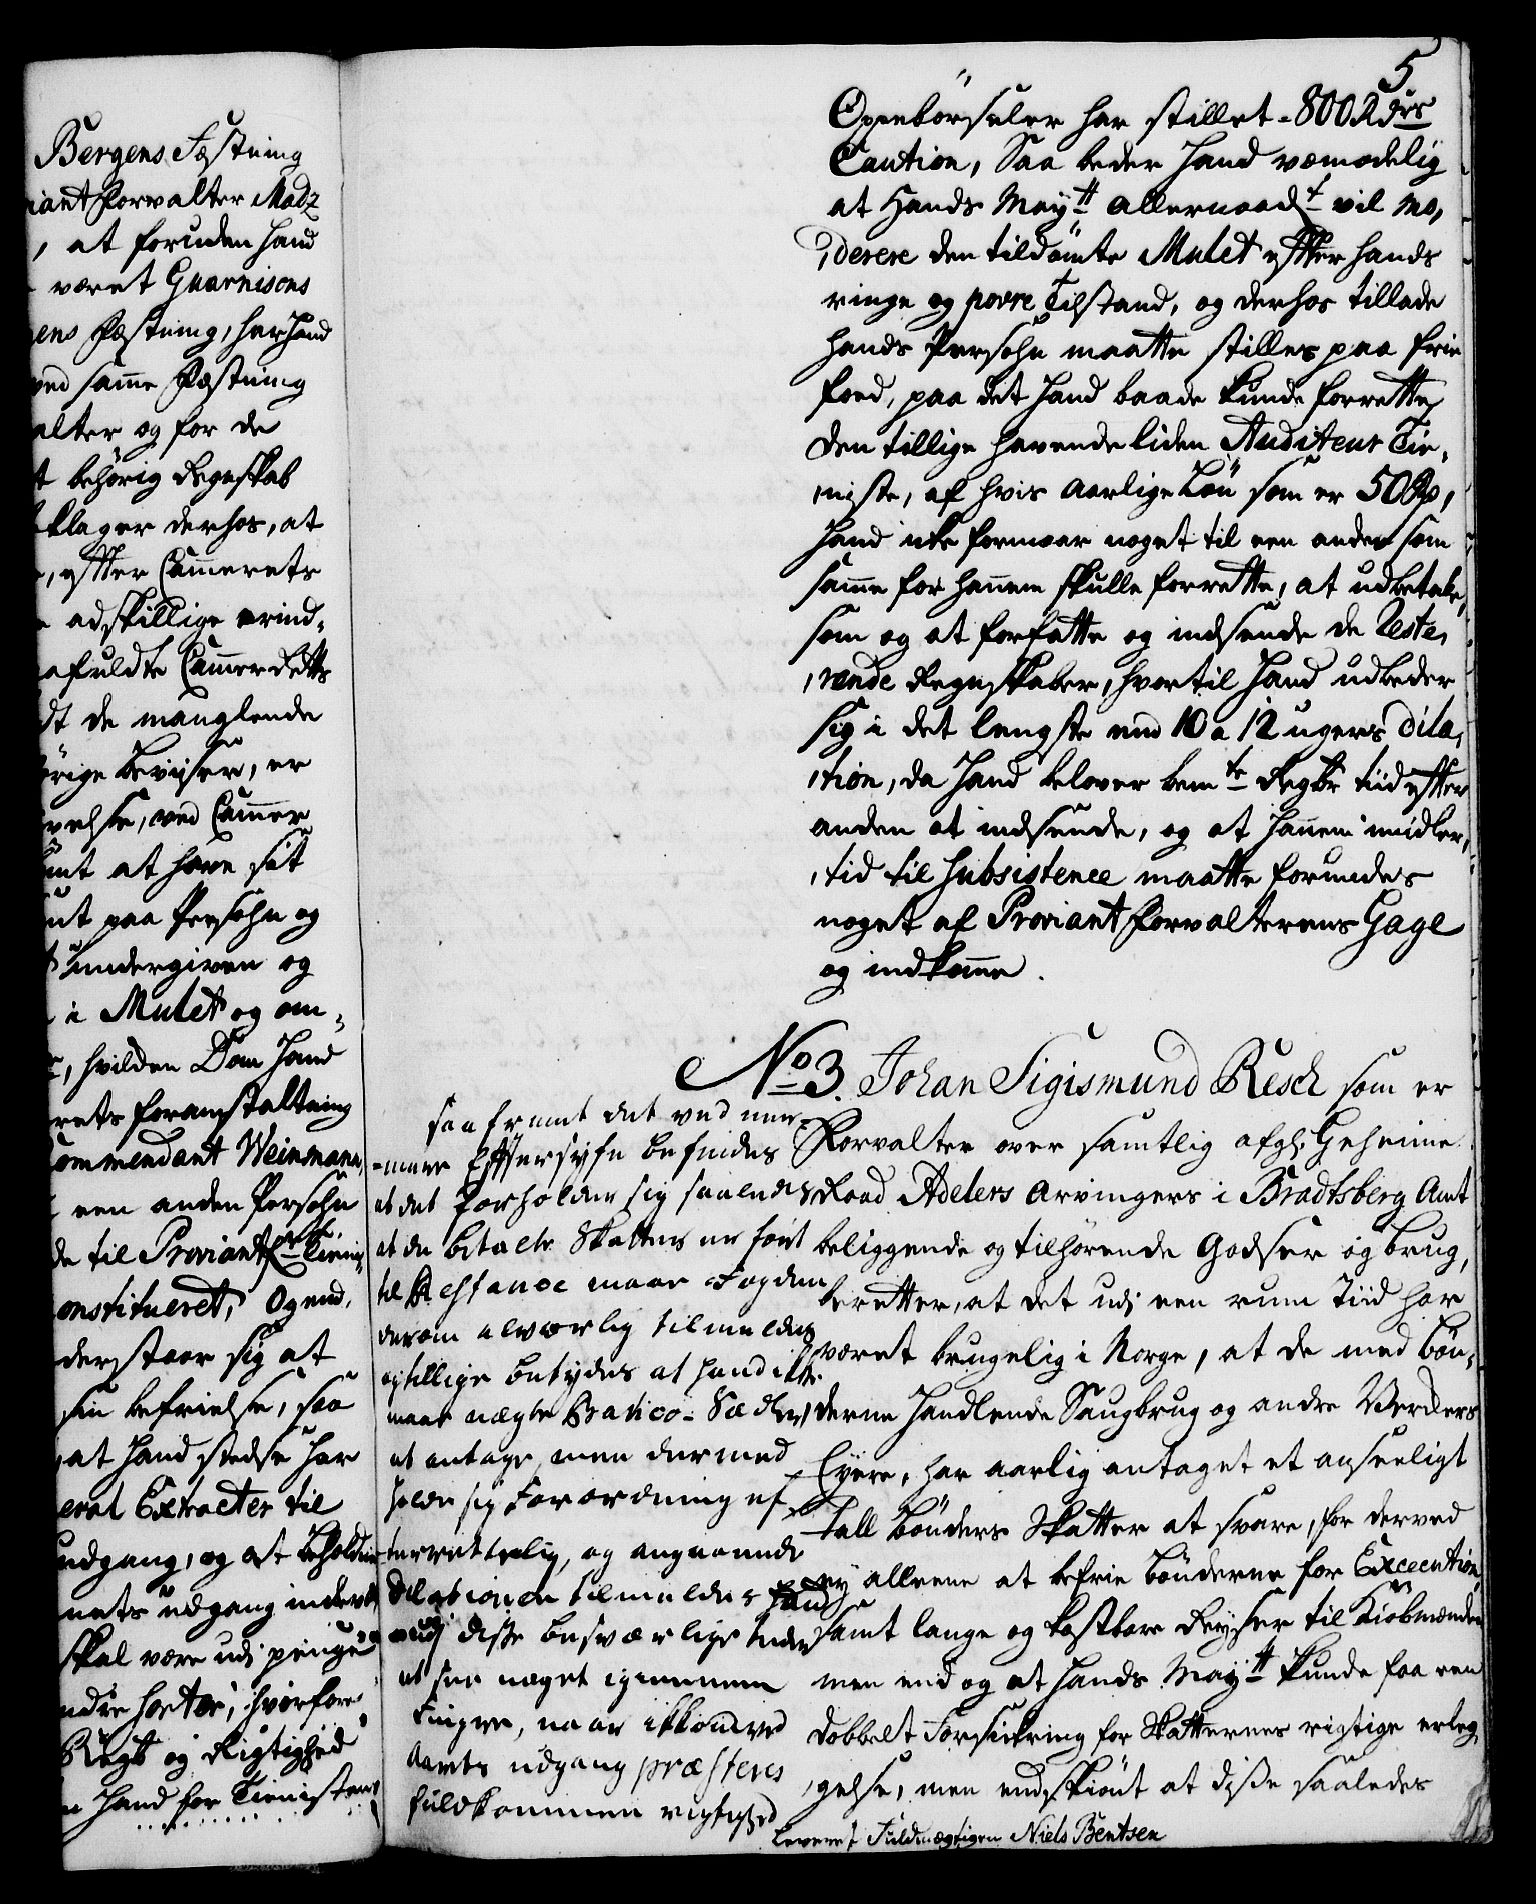 Bergens Fæstning
iant Forvalter Madz
, at foruden hand
været Guarnisons
ens Fæstning, har hand
ved samme Fæstning
alter og for de
t behörig Regnskab
klager derhos, at
, effter Cammerets
adskillige erind,
afuldte Cammer Retts
dt de manglende
örige beviiser, er
velse, ved Cammer
mt at have sit
ut paa Persohn og
undergiven og
i Mulct og om,
, hvilken Dom hand
rets foranstaltning
ommendant Weinmann,
een anden Persohn
de til Proviant Tieni,
onstitueret, Ogend,
derstaar sig at
sin befrielse, saa
at hand stedse har
eral Extracter til
udgang, og at beholdn
nets udgang
skal være udi penge
ndre sorter, hvorfore
Regsk og Rigtighed
hand for Tienisten
5
Openbörseler har stillet 800 Rdrs
Caution, Saa beder hand vemodelig
at Hands Maytt allernaadt vil mo,
,derere den tildömte Mulct effter hands
ringe og povre Tilstand, og derhos tillade
hands Persohn maatte stilles paa frie
foed, paa det hand baade kunde forrette
den tillige havende liden Auditeur Tie,
,niste, af hvis aarlige Lön som er 50 Rd,
hand icke formaar noget til een anden som
samme for hannem skulle forrette, at udbetale,
som og at forfatte og indsende de Reste,
,rende Regnskaber, hvortil hand udbeder
sig i det lengste end 10 a 12 ugers Dila,
,tion, da hand belover bemte Regsk tiid effter
anden at indsende, og at hannem imidler,
,tid til Subsistence maatte forundes
noget af Proviant Forvalterens Gage
og indkomme.
No 3. Johan Sigismund Resch som er
Forvalter over samtlig afgl. Geheime
Raad Adelers Arvingers i Bradtsberg Amt
beliggende og tilhörende Godser og brug,
beretter, at det udi een rum Tiid har
været brugelig i Norge, at de med bön,
derne handlende Saugbrug og andre Verckers
Eyere, har aarlig antaget et anseeligt
Tall bönders Skatter at svare, for derved
ey alleene at befrie bönderne for Execution
samt lange og kostbare Reyser til Kiöbmænden
men end og at hands Maytt kunde faa een
dobbelt Forsickring for Skatternes rigtige erleg,
,gelse, men endskiönt at disse saaledes
saafremt det ved nær,
,mere Effterseyn befindes
at det forholder sig saaledes
at de betalte Skatter er fört
til Restance maae Fogden
derom alvorlig tilmeldes
og tillige betydes at hand ikke
maae nægte Banco-Sedler
at antage, men dermed
holde sig Forordning ef
terrettelig, og angaaende
Dilationen tilmeldes
udi disse besværlige tider
at see noget igiennem
Fingre, naar ikkun ved
Aarets udgang præsteres
fuldkommen rigtighed
Leveret Fuldmægtigen Niels Bentsen